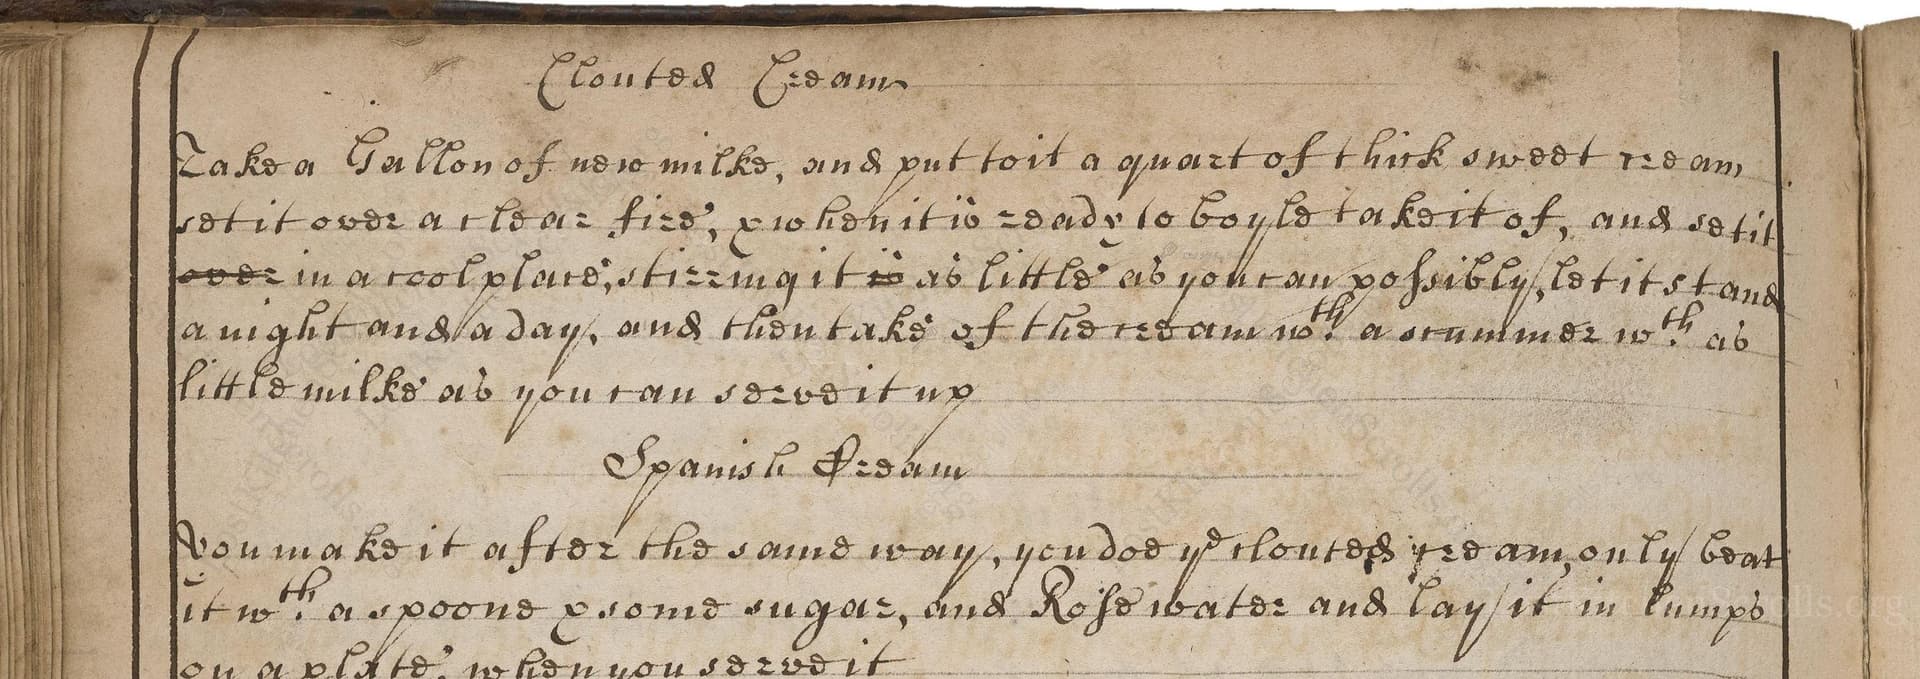 Clouted Cream
Take a Gallon of new milke, and put to it a quart of thick sweet cream
set it over a clear fire, & when it is ready to boyle take it of, and set it
over in a cool place, stirring it is as little as you can possibly, let it stand
a night and a day, and then take of the cream wth. a scummer wth. as
little milke as you can serve it up
Spanish Cream
You make it after the same way, you doe ye clouted cream, only beat
it wth. a spoone & some sugar, and Rose water and lay it in lumps
on a plate, when you serve it